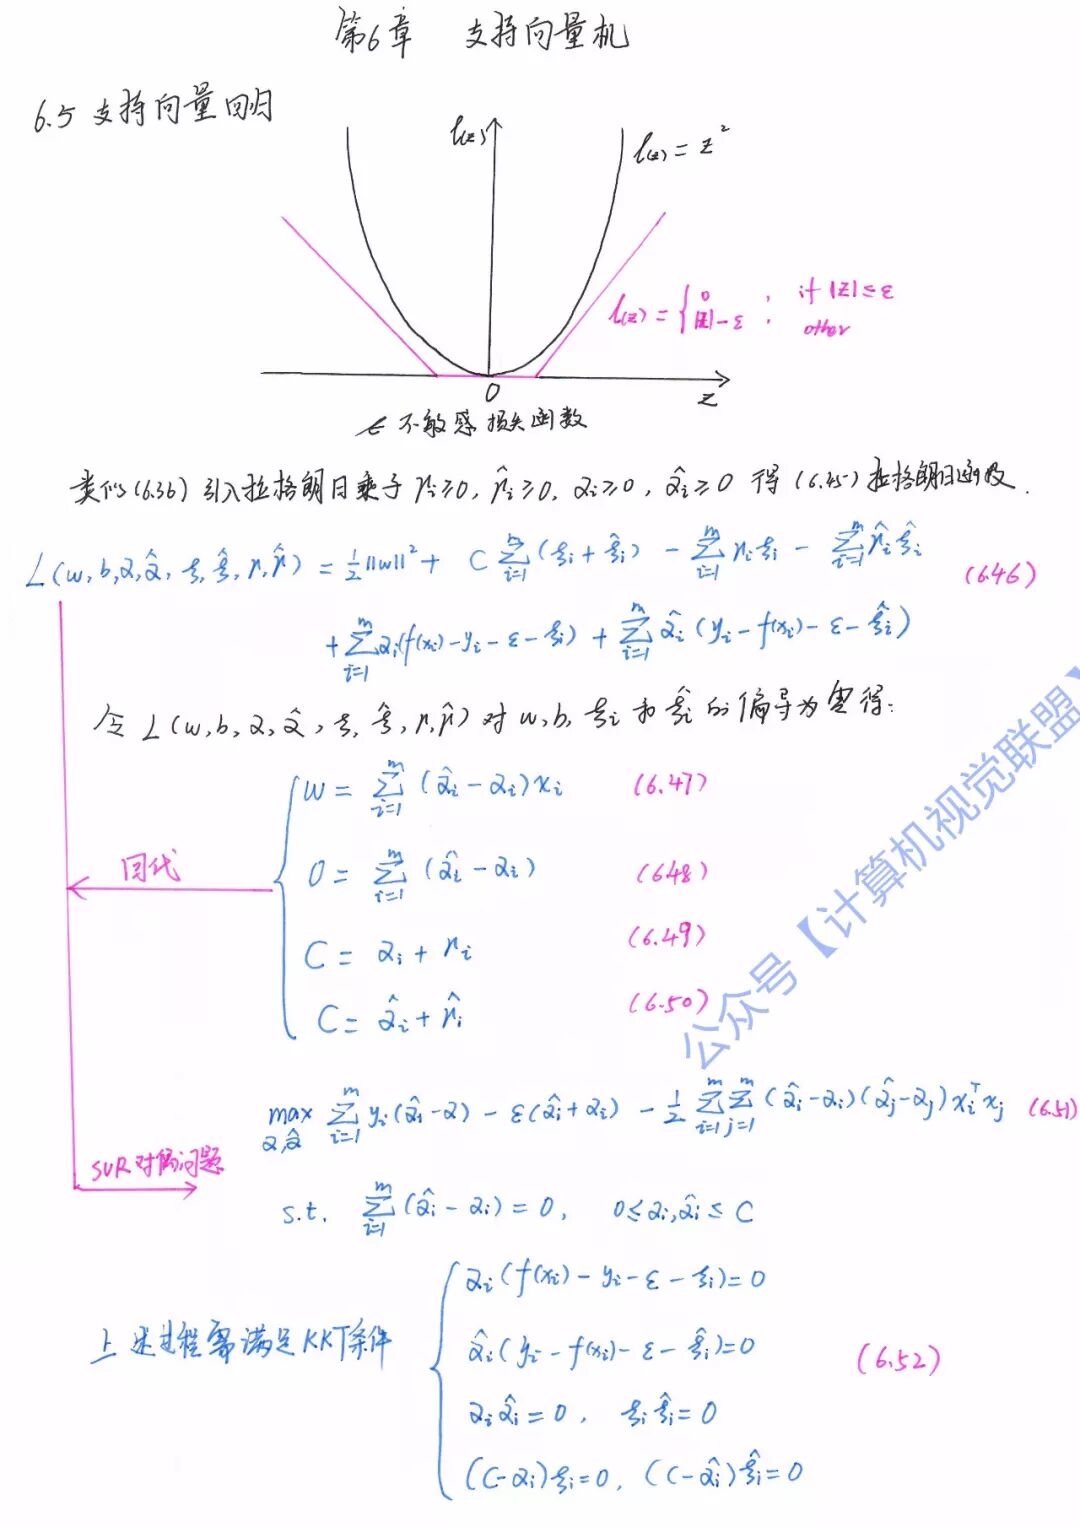 第6章 支持向量机
6.5 支持向量回归
l(z)
l(z) = z²
l(z) = { 0 ; if |z| ≤ ε
|z| - ε ; other
0
z
ε 不敏感损失函数
类似(6.36)引入拉格朗日乘子 μi≥0, μ̂i≥0, αi≥0, α̂i≥0 得(6.45)拉格朗日函数.
L(w,b,α,α̂,ξ,ξ̂,μ,μ̂) = ½||w||² + C Σ_{i=1}^{m} (ξi + ξ̂i) - Σ_{i=1}^{m} μiξi - Σ_{i=1}^{m} μ̂iξ̂i (6.46)
+ Σ_{i=1}^{m} αi(f(xi) - yi - ε - ξi) + Σ_{i=1}^{m} α̂i (yi - f(xi) - ε - ξ̂i)
令 L(w,b,α,α̂,ξ,ξ̂,μ,μ̂) 对 w,b,ξi 和 ξ̂i 的偏导为零得:
w = Σ_{i=1}^{m} (α̂i - αi)xi (6.47)
回代
0 = Σ_{i=1}^{m} (α̂i - αi) (6.48)
C = αi + μi (6.49)
C = α̂i + μ̂i (6.50)
max_{α,α̂} Σ_{i=1}^{m} yi(α̂i - α) - ε(α̂i + αi) - ½ Σ_{i=1}^{m} Σ_{j=1}^{m} (α̂i - αi)(α̂j - αj) xiᵀxj (6.51)
SVR对偶问题
s.t. Σ_{i=1}^{m} (α̂i - αi) = 0, 0 ≤ αi, α̂i ≤ C
上述过程需满足KKT条件
αi(f(xi) - yi - ε - ξi) = 0
α̂i(yi - f(xi) - ε - ξ̂i) = 0 (6.52)
αiα̂i = 0, ξiξ̂i = 0
(C-αi)ξi = 0, (C-α̂i)ξ̂i = 0
公众号【计算机视觉联盟】